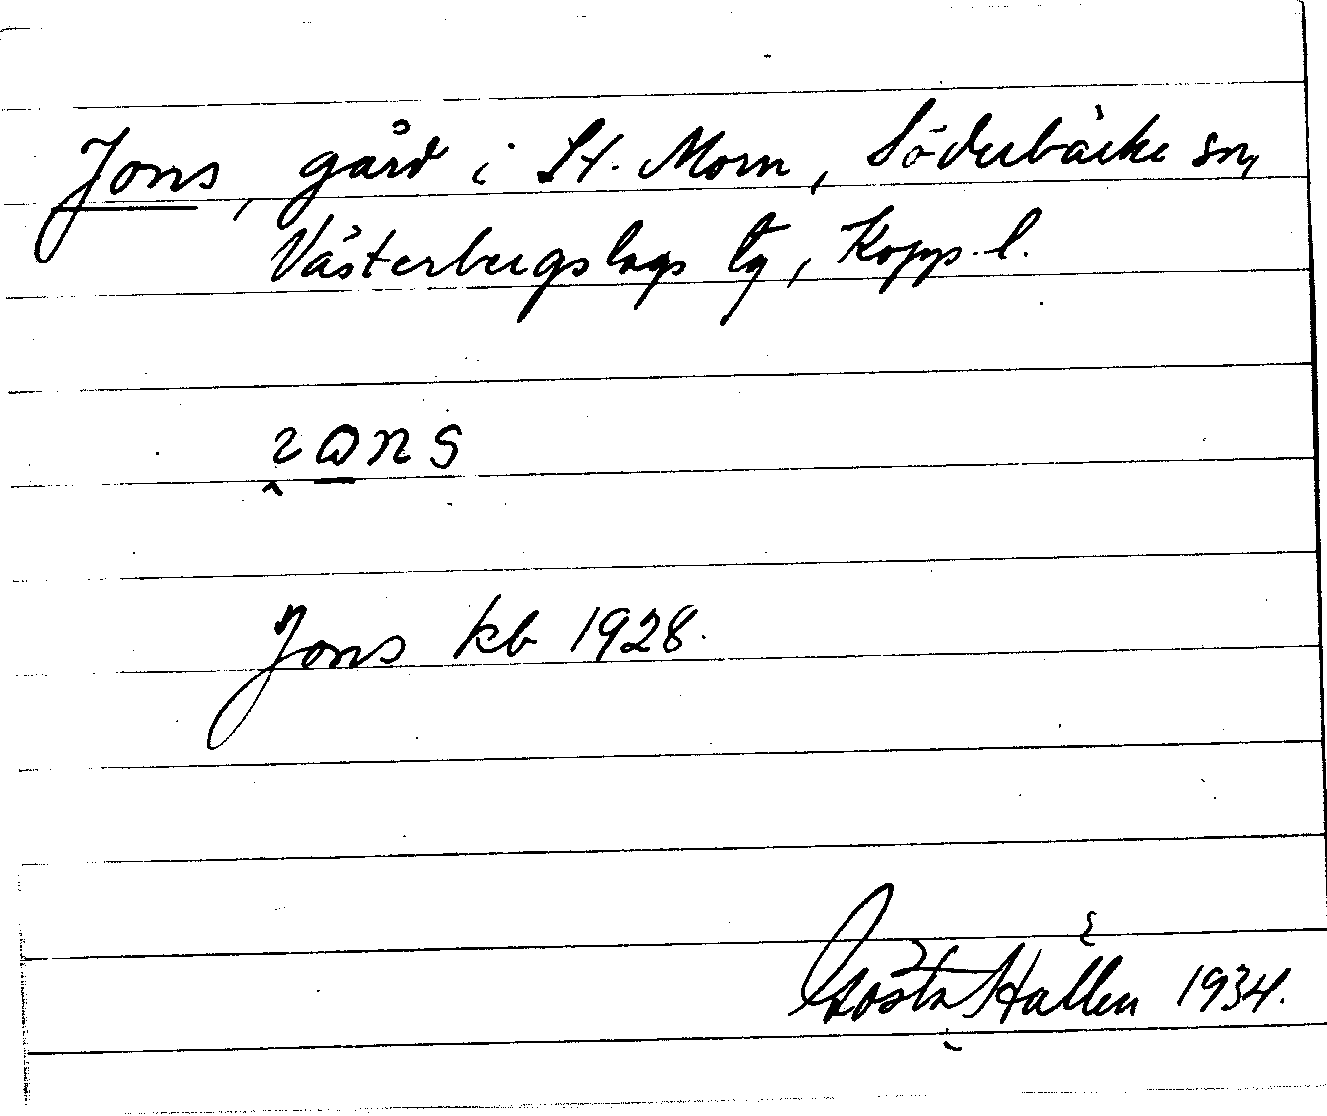 Jons, gård i St. Morn, Söderbärke sn,
Västerbergslags tg, Kopp. l.
Jons kb 1928.
Gösta Hallén 1934.